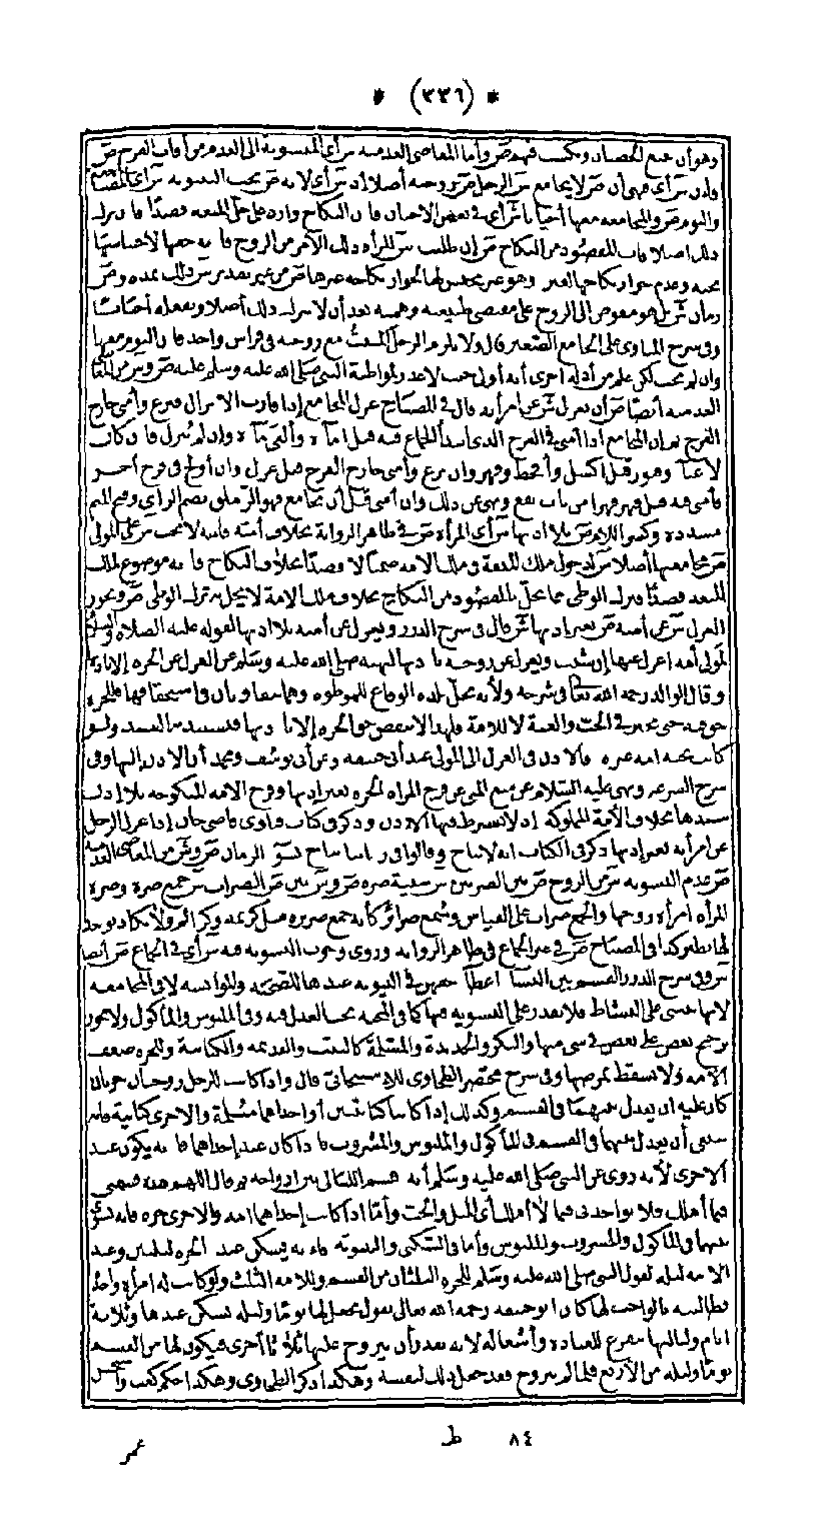 * (٣٣٦) *
وهو أن يمنع وأما المعاصى العدمية ش أى المنسوبة الى العدم من آفات الفرج ص
ش أى فهى أن ص لا يجامع ش الرجل ص زوجته أصلا ش أى لانه ص يجب التسوية ش أى
والنوم ص والمجامعة معها أحيانا ش أى فى بعض الاحيان فان النكاح وارد على حل المتعة قصدا فان ترك
ذلك أصلا فات المقصود من النكاح ص إن طلبت ش المرأة ذلك الامر من الزوج فانه حقها لاحتباسها
وعدم جواز نكاحها الغير وهو غير محتبس لها لجواز نكاحه غيرها ص من غير تقدير ش ذلك بمدة ص
زمان ش بل هو مفوض الى الزوج على مقتضى طبيعته بعد أن لا يترك ذلك أصلا ويفعله أحيانا
وفى شرح المناوى على الجامع الصغير قال ولا يلزم الرجل المبيت مع زوجته فى فراش واحد فان النوم معها
وان لم يجب لكن علم من أدلة أخرى أنه أولى حيث لا عذر لمواظبة النبى صلى الله عليه وسلم عليه ص و ش من
العدمية أيضا ص أن يعزل ش عن امرأته قال فى المصباح عزل المجامع إذا قارب الانزال فنزع وأمنى خارج
الفرج المجامع اذا أمنى فى الفرج الذى ابتدأ الجماع فيه قيل وإن لم ينزل فان كان
لاعياء وفتور قيل أكسل وأقحط وفهر وان نزع وأمنى خارج الفرج قيل عزل وان أولج فى فرج آخر
فأمنى فيه قيل فهر فهرا من باب نفع ونهى عن ذلك وان أمنى قبل أن يجامع فهو الزملق بضم الزاى وفتح الميم
مشددة وكسر اللام ص بلا اذنها ش أى المرأة ص فى ظاهر الرواية بخلاف أمته فانه لا يجب ش على المولى
ص مجامعتها أصلا ش لدخول ملك المتعة فى ملك الامة ضمنا لا قصدا بخلاف النكاح فانه موضوع لملك
المتعة قصدا فترك الوطئ مما يخل بالمقصود من النكاح بخلاف ملك الامة لا يخل به ترك الوطئ ص ويجوز
العزل ش عن أمته ص بغير اذنها ش قال فى شرح الدرر ويعزل عن أمته بلا اذنها لقوله عليه الصلاة والسلام
لمولى أمة اعزل عنها إن شئت ويعزل عن زوجته باذنها لنهيه صلى الله عليه وسلم عن العزل عن الحرة إلا باذنها
وقال الوالد رحمه الله تعالى فى شرحه ولأنه يخل بلذة الوقاع للموطوءة
والعنة لا للامة فلهذا لا ينقص حق الحرة إلا باذنها
كانت تحته أمة غيره فالاذن فى العزل الى المولى عند أبى حنيفة وعن أبى يوسف ومحمد أن الاذن اليها وفى
شرح الشرعة ونهى عليه السلام عن منع المنى عن فرج المرأة الحرة بغير إذنها وفرج الامة المنكوحة بلا إذن
سيدها بخلاف الأمة المملوكة إذ لا يشترط فيها الاذن وذكر فى كتاب فتاوى قاضى خان إذا عزل الرجل
عن امرأته بغير إذنها ذكر فى الكتاب انه لا يباح وقالوا فى زماننا يباح لسوء الزمان ص و ش من المعاصى العدمية
ص عدم التسوية ش من الزوج ص بين الضرتين ش تثنية ضرة ص و ش بين ص الضرات ش جمع ضرة وضرة
المرأة امرأة زوجها والجمع ضرات على القياس وسمع ضرائر كأنه جمع ضريرة مثل كريمة وكرائم ولا يكاد يوجد
لها نظير كذا فى المصباح ص فى غير الجماع فى ظاهر الرواية وروى وجوب التسوية فيه ش أى فى الجماع ص أيضا
ش وفى شرح الدرر القسم بين النساء اعطاء حقهن فى البيتوتة عندها للصحبة والموانسة لا فى المجامعة
لانها تبتنى على النشاط فلا يقدر على التسوية فيها كما فى المحبة يجب العدل فيه وفى الملبوس والمأكول ولا يجوز
ترجيح بعض على بعض فى شىء منها والبكر والجديدة والمسلمة كالثيب والقديمة والكتابية وللحرة ضعف
الأمة ولا تسقط بمرضها وفى شرح مختصر الطحاوى للاسبيجابى قال واذا كانت للرجل زوجتان حرتان
كان عليه ان يعدل بينهما فى القسم وكذلك إذا كانتا كتابيتين أو احداهما مسلمة والاخرى كتابية فانه
ينبغى أن يعدل بينهما فى القسم فى المأكول والملبوس والمشروب فاذا كان عند إحداهما فانه يكون عند
الاخرى لأنه روى عن النبى صلى الله عليه وسلم أنه قسم الليالى بين ازواجه ثم قال اللهم هذه قسمتى
فيما أملك فلا تؤاخذنى فيما لا أملك أى الميل والحب وأما اذا كانت إحداهما أمة والاخرى حرة فانه يسوى
بينهما فى المأكول والمشروب والملبوس وأما فى السكنى والبيتوتة فانه يسكن عند الحرة ليلتين وعند
الامة ليلة لقول النبى صلى الله عليه وسلم للحرة الثلثان من القسم وللامة الثلث ولو كانت له امرأة واحدة
فطالبته بالواجب لها كان ابو حنيفة رحمه الله تعالى يقول يجعل لها يوما وليلة يسكن عندها وثلاثة
ايام ولياليها يتفرغ للعبادة وأشغاله لانه يقدر أن يتزوج عليها ثلاثا أخرى فيكون لها من القسم
يوما وليلة من الأربع فلما لم يتزوج فقد جعل ذلك لنفسه وهكذا ذكر الطحاوى وهكذا حكم كعب
٨٤ ط عمر